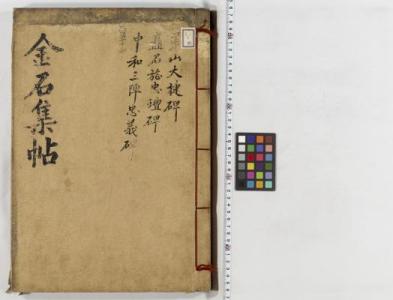 山大捷碑
矗石旌忠壇碑
中和三陣忠義碑
金石集帖